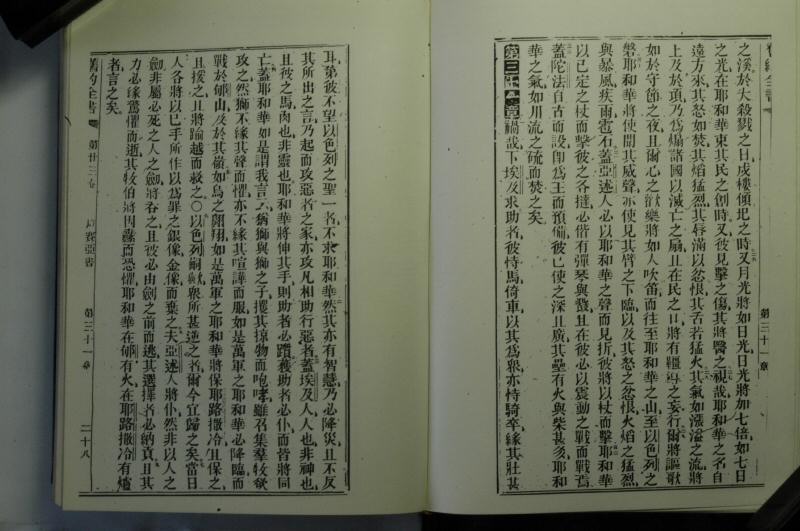 舊約全書
第三十一章
之溪於大殺戮之日戍樓傾圮之時又月光將如日光日光將加七倍如七日
之光在耶和華束其民之創時又彼見擊之傷其將醫之視哉耶和華之名自
遠方來其怒如焚其焰猛烈其唇滿以忿恨其舌若猛火其氣如漲溢之流將
上及於項乃爲煽諸國以滅亡之扇且在民之口將有韁導之妄行爾將謳歌
如於守節之夜且爾心之歡樂將如人吹笛而往至耶和華之山至以色列之
磐耶和華將使聞其威聲亦使見其臂之下臨以及其怒之忿恨火焰之猛烈
與暴風疾雨雹石蓋亞述人必以耶和華之聲而見折彼將以杖而擊耶和華
以已定之杖而擊彼之各撻必偕有彈琴與鼗且在彼必以震動之戰而戰焉
蓋陀法自古而設卽爲王而預備彼已使之深且廣其壘有火與柴甚多耶和
華之氣如川流之硫而焚之矣
第三十一章禍哉下埃及求助者彼恃馬倚車以其爲衆亦恃騎卒緣其壯甚
耳第彼不望以色列之聖一者不求耶和華然其亦有智慧乃必降災且不反
其所出之言乃起而攻惡者之家亦攻凡相助行惡者蓋埃及人人也非神也
且彼之馬肉也非靈也耶和華將伸其手則助者必躓獲助者必仆而皆將同
亡蓋耶和華如是謂我言云猶獅與獅之子攫其掠物而咆哮雖召集羣牧欲
攻之然獅不緣其聲而懼亦不緣其喧譁而服如是萬軍之耶和華必降臨而
戰於郇山及於其嶺如鳥之翺翔如是萬軍之耶和華將保耶路撒冷且保之
且援之且將踰越而救之〇以色列嗣歟衆所甚逆之者爾今宜歸之矣當日
人各將以己手所作以爲罪之銀像金像而棄之夫亞述人將仆然非以人之
劍非屬必死之人之劍將吞之且彼必由劍之前而逃其選擇者必納貢且其
力必緣驚懼而逝其牧伯將因纛而恐懼耶和華在郇有火在耶路撒冷有爐
者言之矣
舊約全書
第廿三卷
以賽亞書
第三十一章
二十八